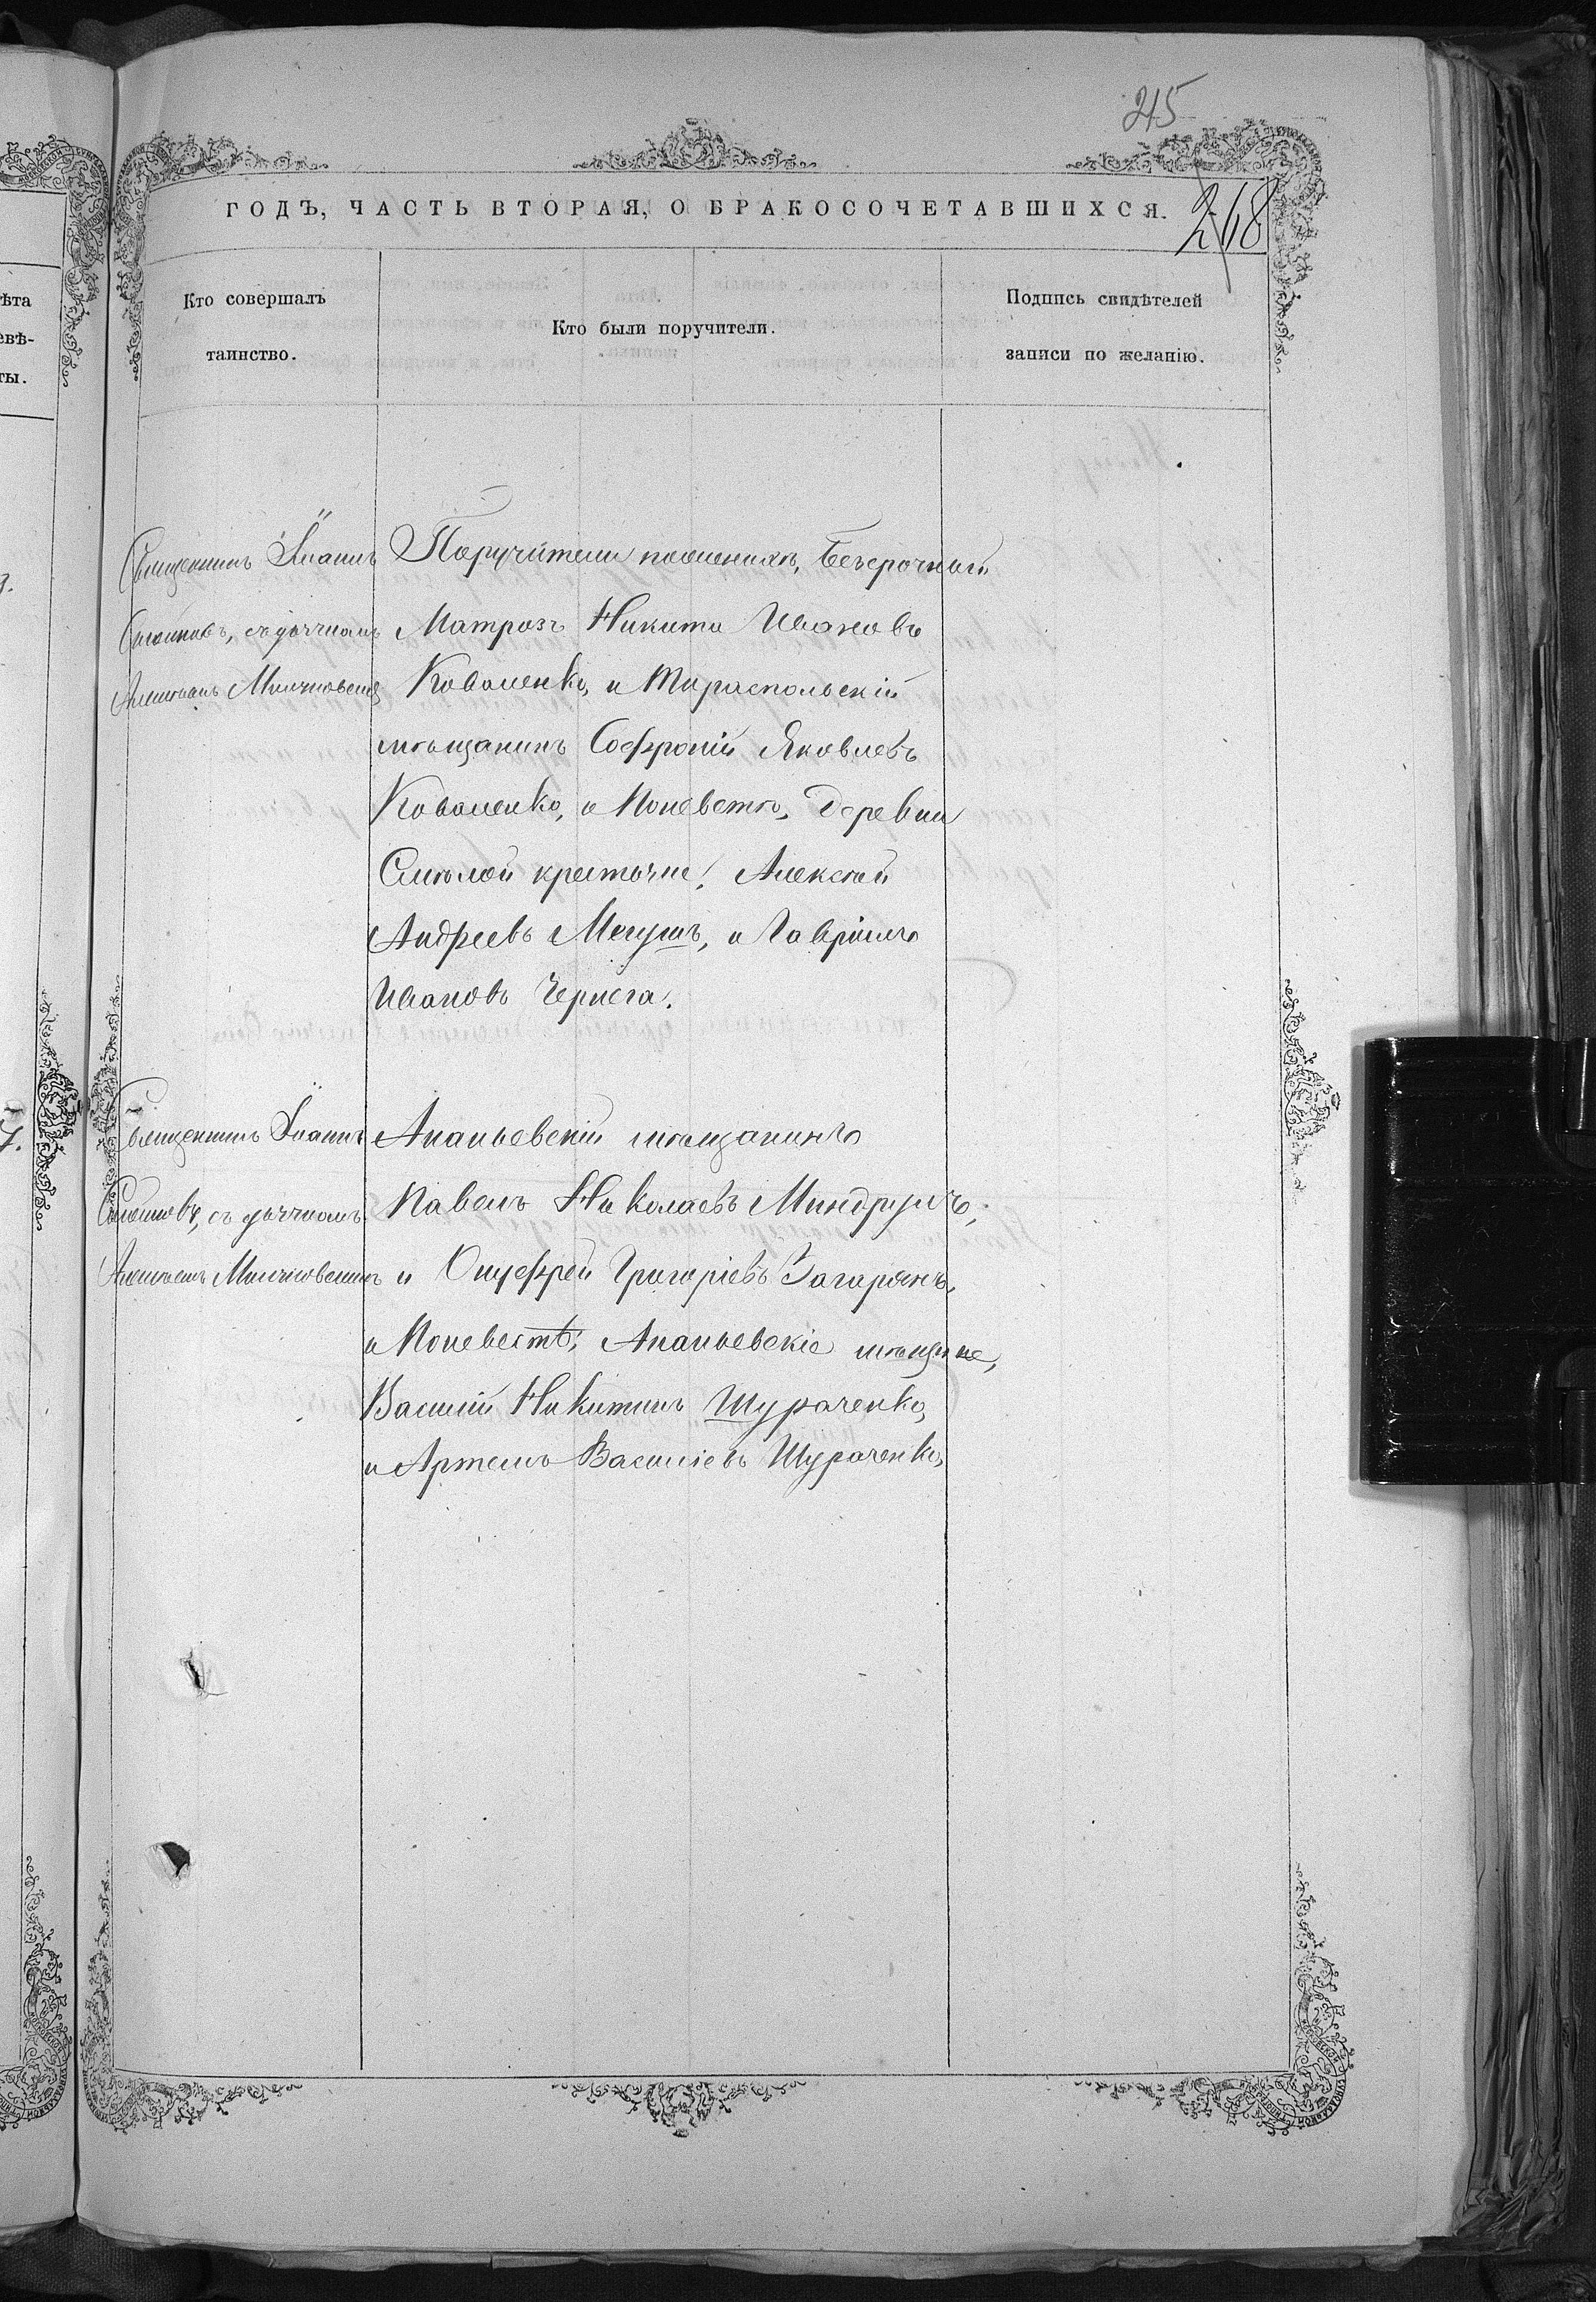 215
ГОДЪ, ЧАСТЬ ВТОРАЯ, О БРАКОСОЧЕТАВШИХСЯ.
268
Кто совершалъ
таинство.
Кто были поручители.
Подпись свидѣтелей
записи по желанію.
Священникъ Іоаннъ
съ дьячкомъ
Поручители по женихѣ, безсрочный
Матрозъ Никита Ивановъ
Коваленко, и Тираспольскій
мѣщанинъ Софроній Яковлевъ
Коваленко, и По невѣстѣ, деревни
крестьяне: Алексѣй
Андреевъ Мегушъ, и Гавріилъ
Ивановъ Чернега.
Священникъ Іоаннъ
съ дьячкомъ
Ананьевскій мѣщанинъ
Павелъ Николаевъ Миндрулъ,
и Онуфрей Григоріевъ Загарянъ,
и По невестѣ; Ананьевскіе мѣщане,
Василій Никитинъ Шураченко,
и Артемъ Васильевъ Шураченко,